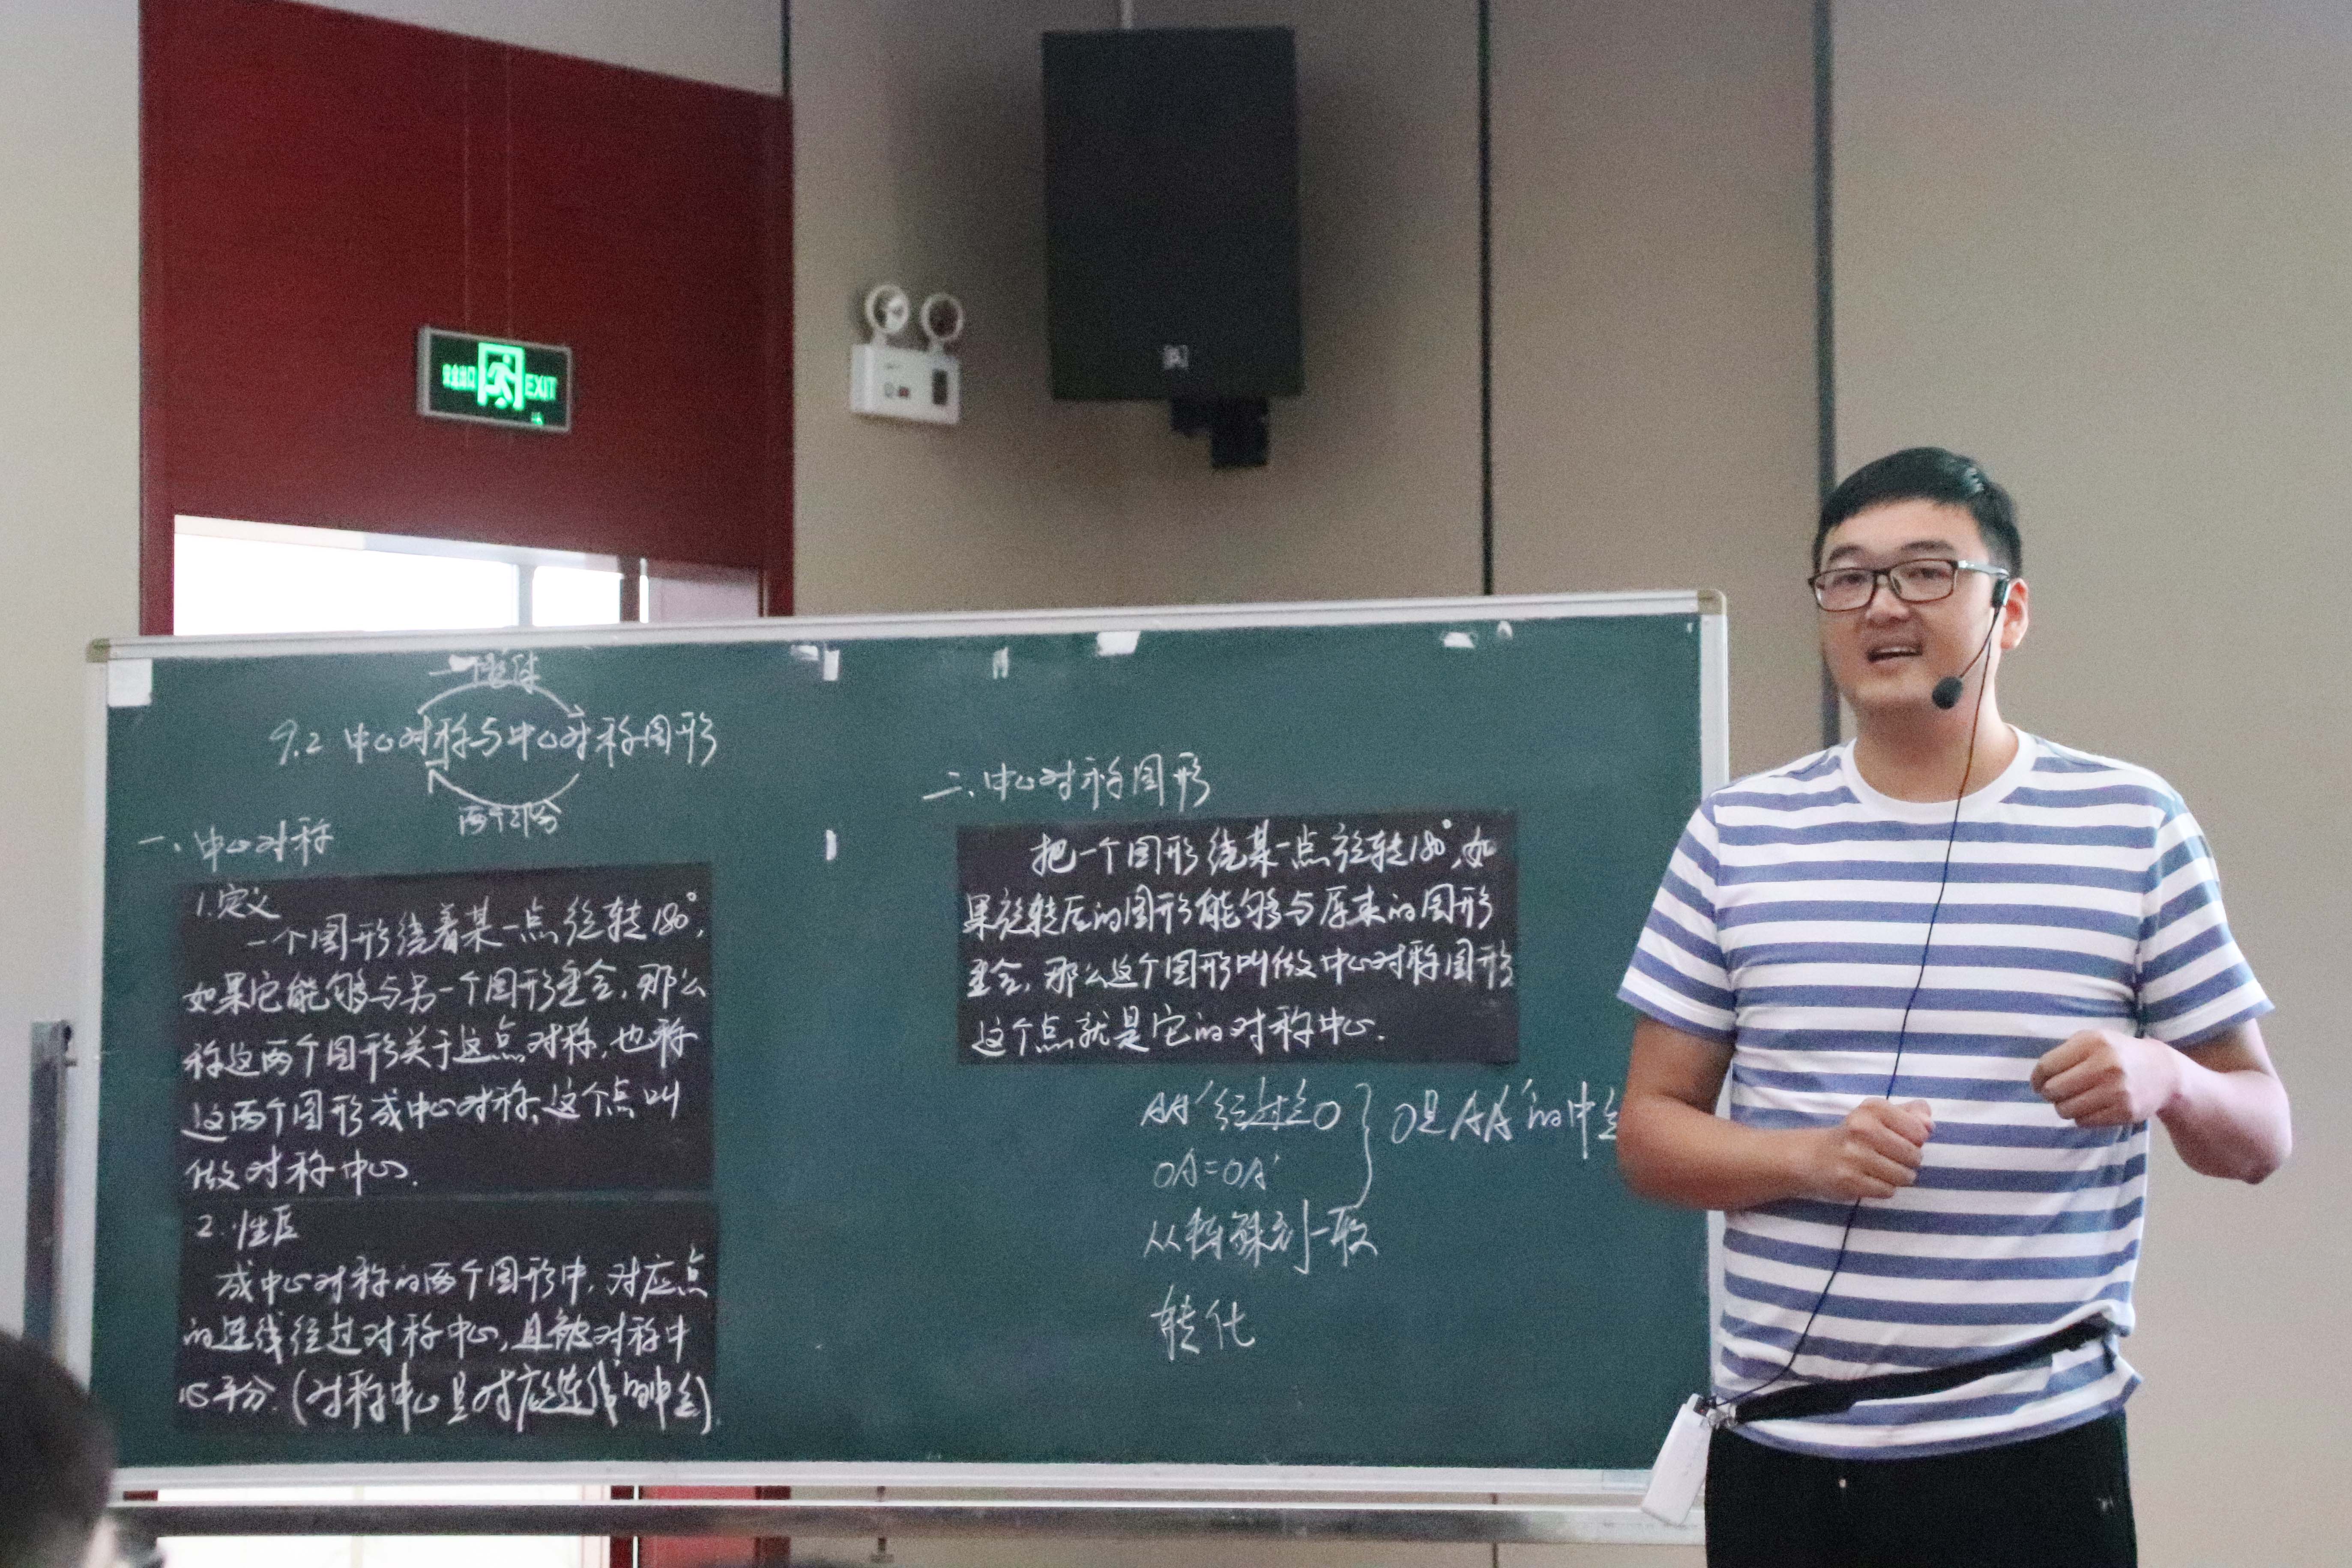 安全出口 EXIT
一个整体
9.2 中心对称与中心对称图形
两个部分
一、中心对称
1.定义
一个图形绕着某一点旋转180°,
如果它能够与另一个图形重合,那么
称这两个图形关于这点对称,也称
这两个图形成中心对称、这个点叫
做对称中心.
2.性质
成中心对称的两个图形中,对应点
的连线经过对称中心,且被对称中
心平分.(对称中心是对应点连线的中点).
二、中心对称图形
把一个图形绕某一点旋转180°,如
果旋转后的图形能够与原来的图形
重合,那么这个图形叫做中心对称图形
这个点就是它的对称中心.
AA'经过点O } O是AA'的中点
OA=OA'
从特殊到一般
转化